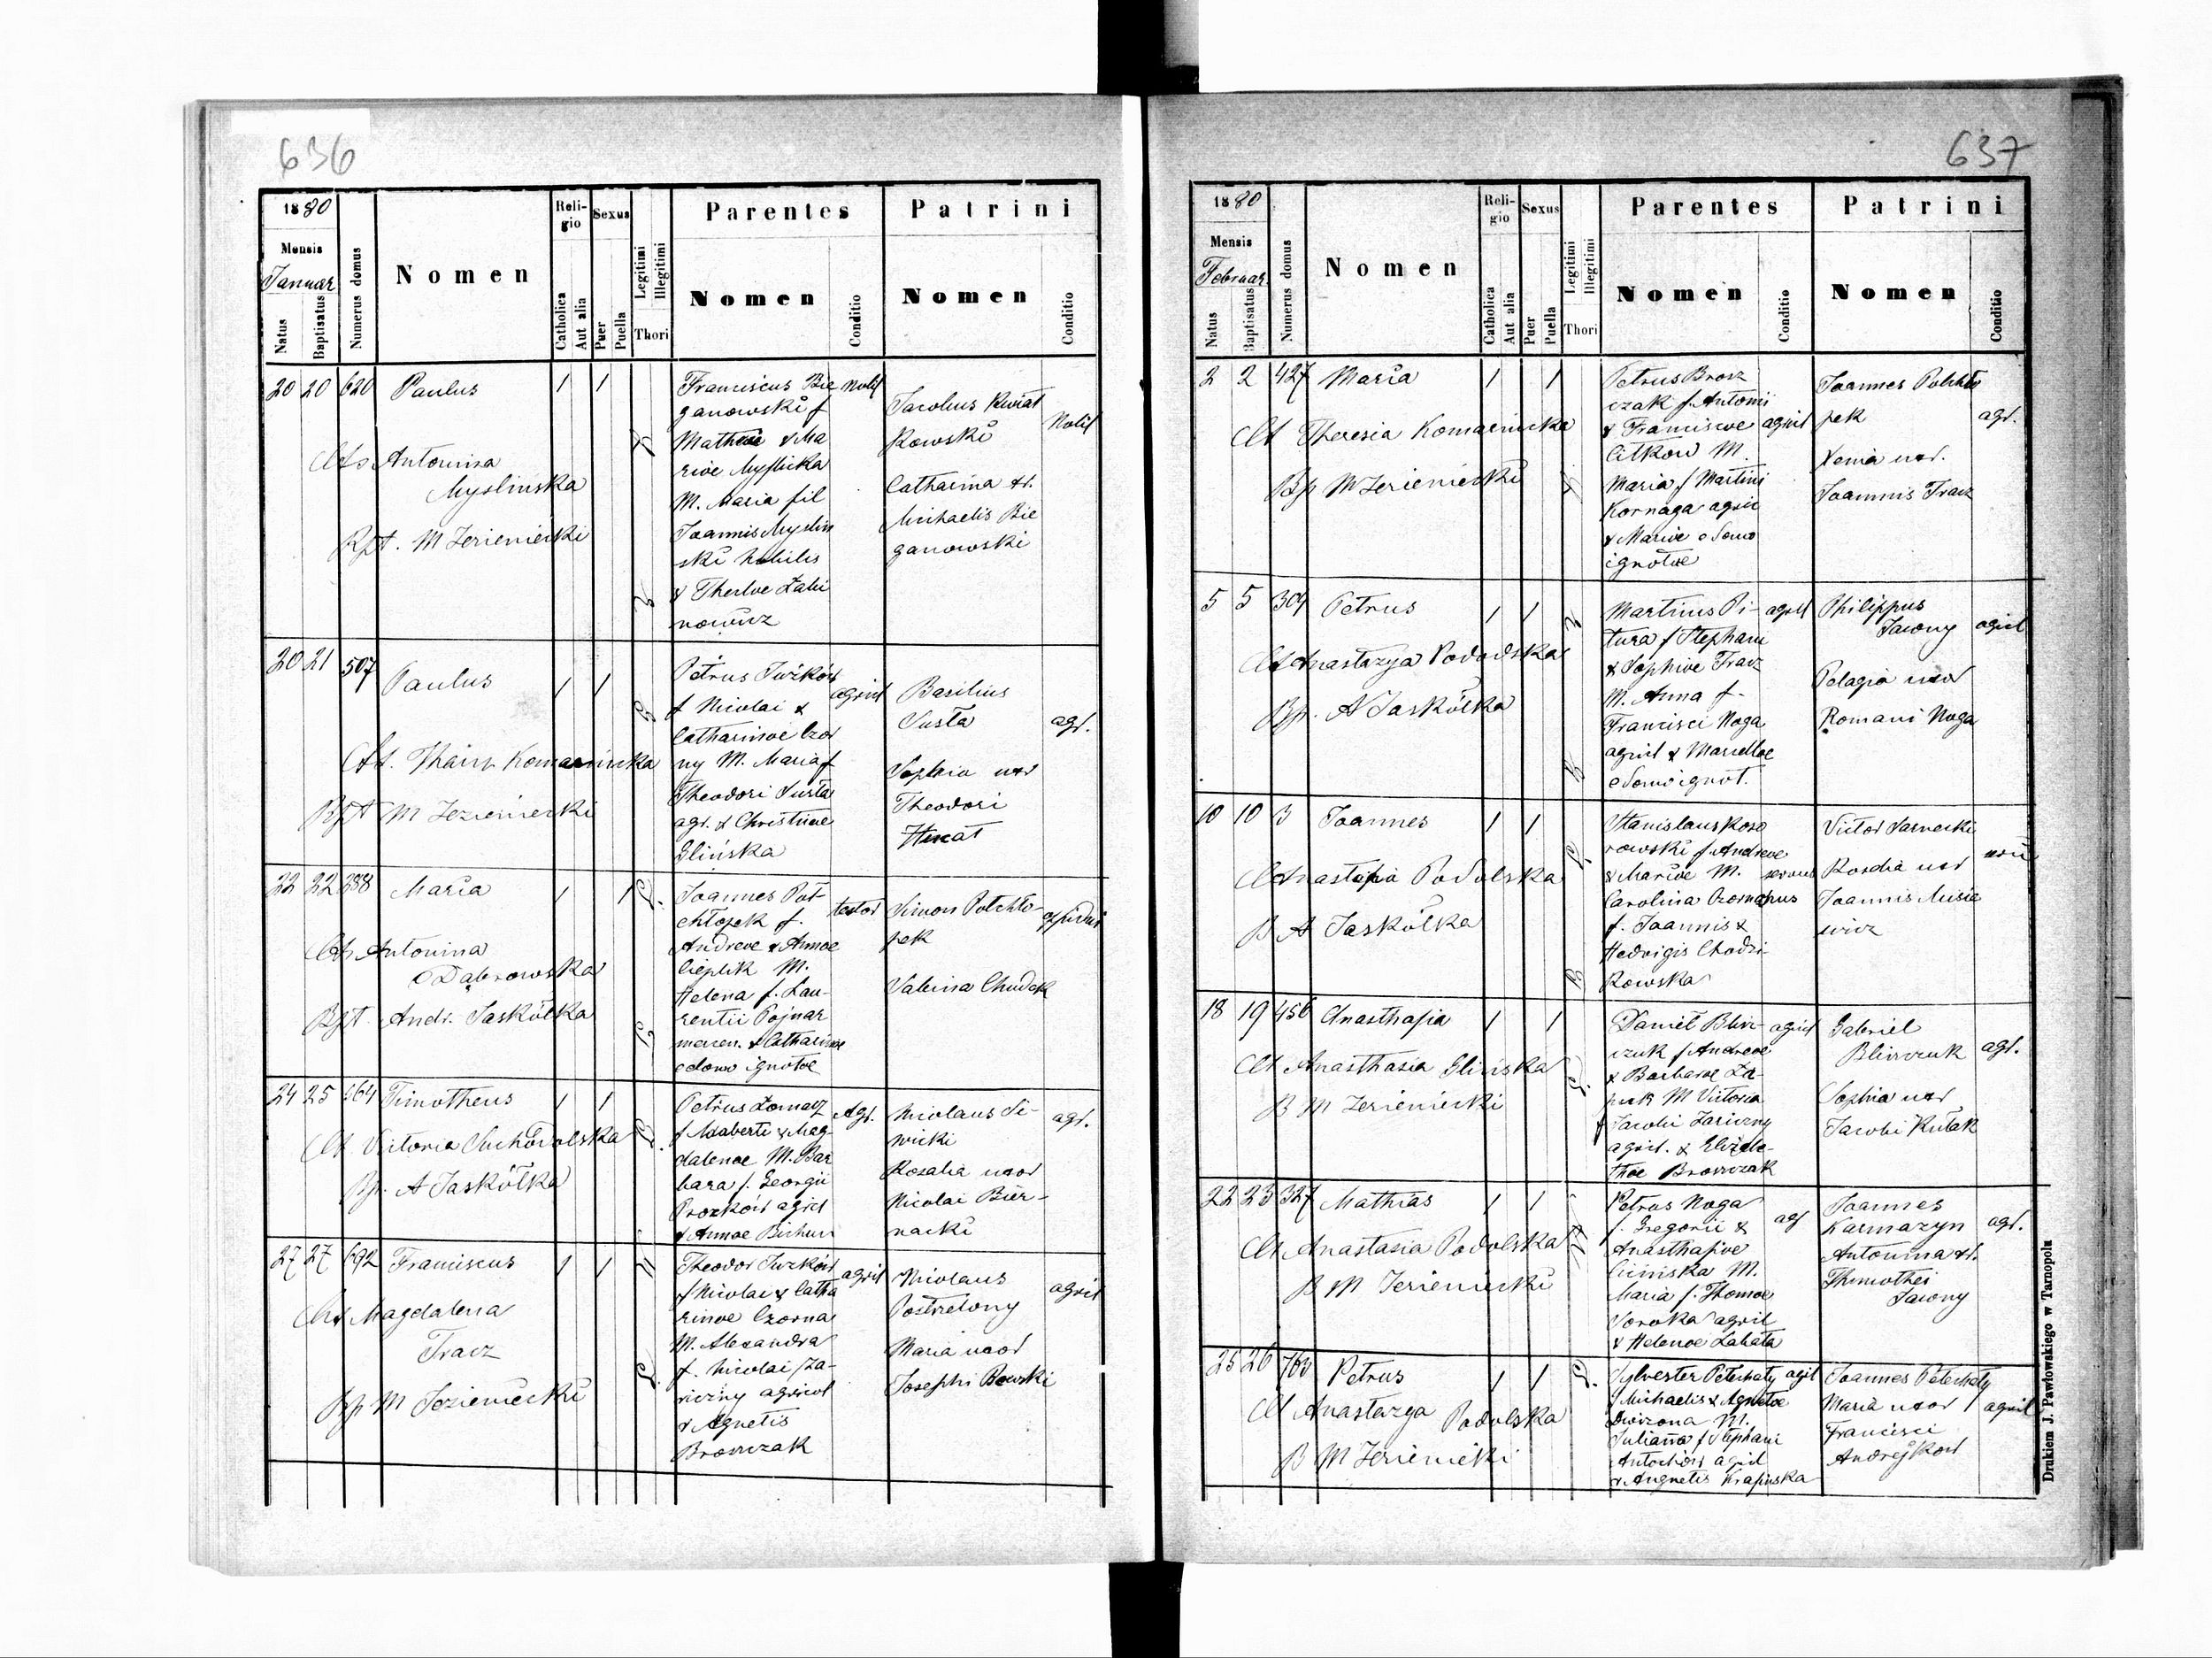 636
1880
Mensis
Januar
Natus
Baptisatus
Numerus domus
Nomen
Reli-
gio
Catholica
Aut alia
Sexus
Puer
Puella
Legitimi
Illegitimi
Thori
Parentes
Nomen
Conditio
Patrini
Nomen
Conditio
20 20 620 Paulus 1 1
Obs Antonina
Myslinska
Bpt. M Jezieniecki
Franciscus Bie
ganowski f
Mathiae & Ma
riae
M. Maria fil
Joannis Myslin
ski nobilis
&
nowicz
Nobil
Jacobus Kwiat
kowski
Catharina ux.
Michaelis Bie
ganowski
Nobil
20 21 507 Paulus 1 1
Obst. Komarnicka
Bpt M Jezieniecki
Petrus Jurków
f Nicolai &
Catharinae Czor
ny M. Maria f
Theodori Susta
agr. & Christinae
Glińska
agricol
Basilius
Susta
Sophia uxor
Theodori
agr.
22 22 238 Maria 1 1
Obs Antonina
Dąbrowska
Bpt. Andr. Jaskółka
Joannes Pot-
chłopek f.
Andreae & Annae
Cieplik M.
Helena f. Lau-
rentii Pojnar
& Catharinae
e domo ignotae
textor
Simon Potchło-
pek
Sabina Chudek
24 25 664 Timotheus 1 1
Ob Victoria Suchodolska
Bp. A Jaskółka
Petrus
f Adalberti & Mag-
dalenae M. Bar
bara f. Georgii
agricol
& Annae
Agr.
Nicolaus Si-
wicki
Rosalia uxor
Nicolai Bier-
nacki
agr.
27 27 692 Franciscus 1 1
Obs Magdalena
Tracz
Bp M Jezieniecki
Theodor Jurków
f Nicolai & Catha
rinae Czorna
M. Alexandra
f. Nicolai Za-
riczny agricol
& Agnetis
Browczak
agricol
Nicolaus
Postrelony
Maria uxor
Josephi
agricol
637
1880
Mensis
Februar.
Natus
Baptisatus
Numerus domus
Nomen
Reli-
gio
Catholica
Aut alia
Sexus
Puer
Puella
Legitimi
Illegitimi
Thori
Parentes
Nomen
Conditio
Patrini
Nomen
Conditio
2 2 427 Maria 1 1
Obs Theresia Komarnicka
Bp M Jezieniecki
Petrus Brow
czak f. Antonii
& Franciscae
M.
Maria f Martini
Kornaga agric
& Mariae e domo
ignotae
agricol
Joannes Potchło
pek
Xenia uxor.
Joannis Tracz
agr.
5 5 309 Petrus 1 1
Ob Anastazya Podolska
Bp. A Jaskółka
Martinus Pi-
tura f Stephani
& Sophiae Tracz
M. Anna f.
Francisci Noga
agricol & Marcellae
e domo ignot.
agricol
Philippus
Jarony
Pelagia uxor
Romani Noga
agricol
10 10 3 Joannes 1 1
Ob Anastasia Podolska
B A Jaskółka
Stanislaus Koso
rowski f. Andreae
& Mariae M.
Carolina
f. Joannis &
Hedvigis Chodzi-
kowska
servus
Victor Sarnecki
uxor
Joannis Musie
wicz
18 19 456 Anasthasia 1 1
Ob Anasthasia Glińska
B M Jezieniecki
Daniel Blisz-
czuk f Andreae
& Barbarae
M Victoria
f Jacobi Zariczny
agricol. & Elizabe-
thae Browczak
agricol
Gabriel
Bliszczuk
Sophia uxor
Jacobi Kułak
agr.
22 23 327 Mathias 1 1
Ob Anastasia Podolska
B M Jezieniecki
Petrus Noga
f. Gregorii &
Anasthasiae
M.
Maria f. Thomae
Soroka agricol
& Helenae Łabata
agr
Joannes
Karmazyn
Antonina ux.
Thimothei
Jarony
agr.
25 26 763 Petrus 1 1
Ob Anastazya Podolska
B M Jezieniecki
Sylvester Petechaty
f Michaelis & Agnetae
M.
Julianna f Stephani
Antochów agricol
& Angnetis Krasinska
agricol
Joannes Petechaty
Maria uxor
Francisci
Andrejków
agricol
Drukiem J. Pawłowskiego w Tarnopolu